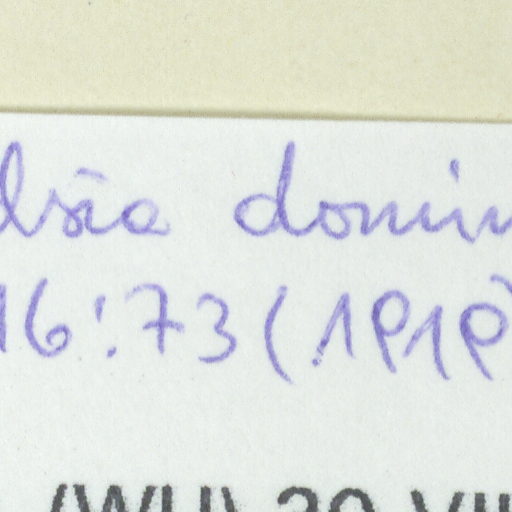 lsia domin
16:73(1919)
(WU) 30 VII